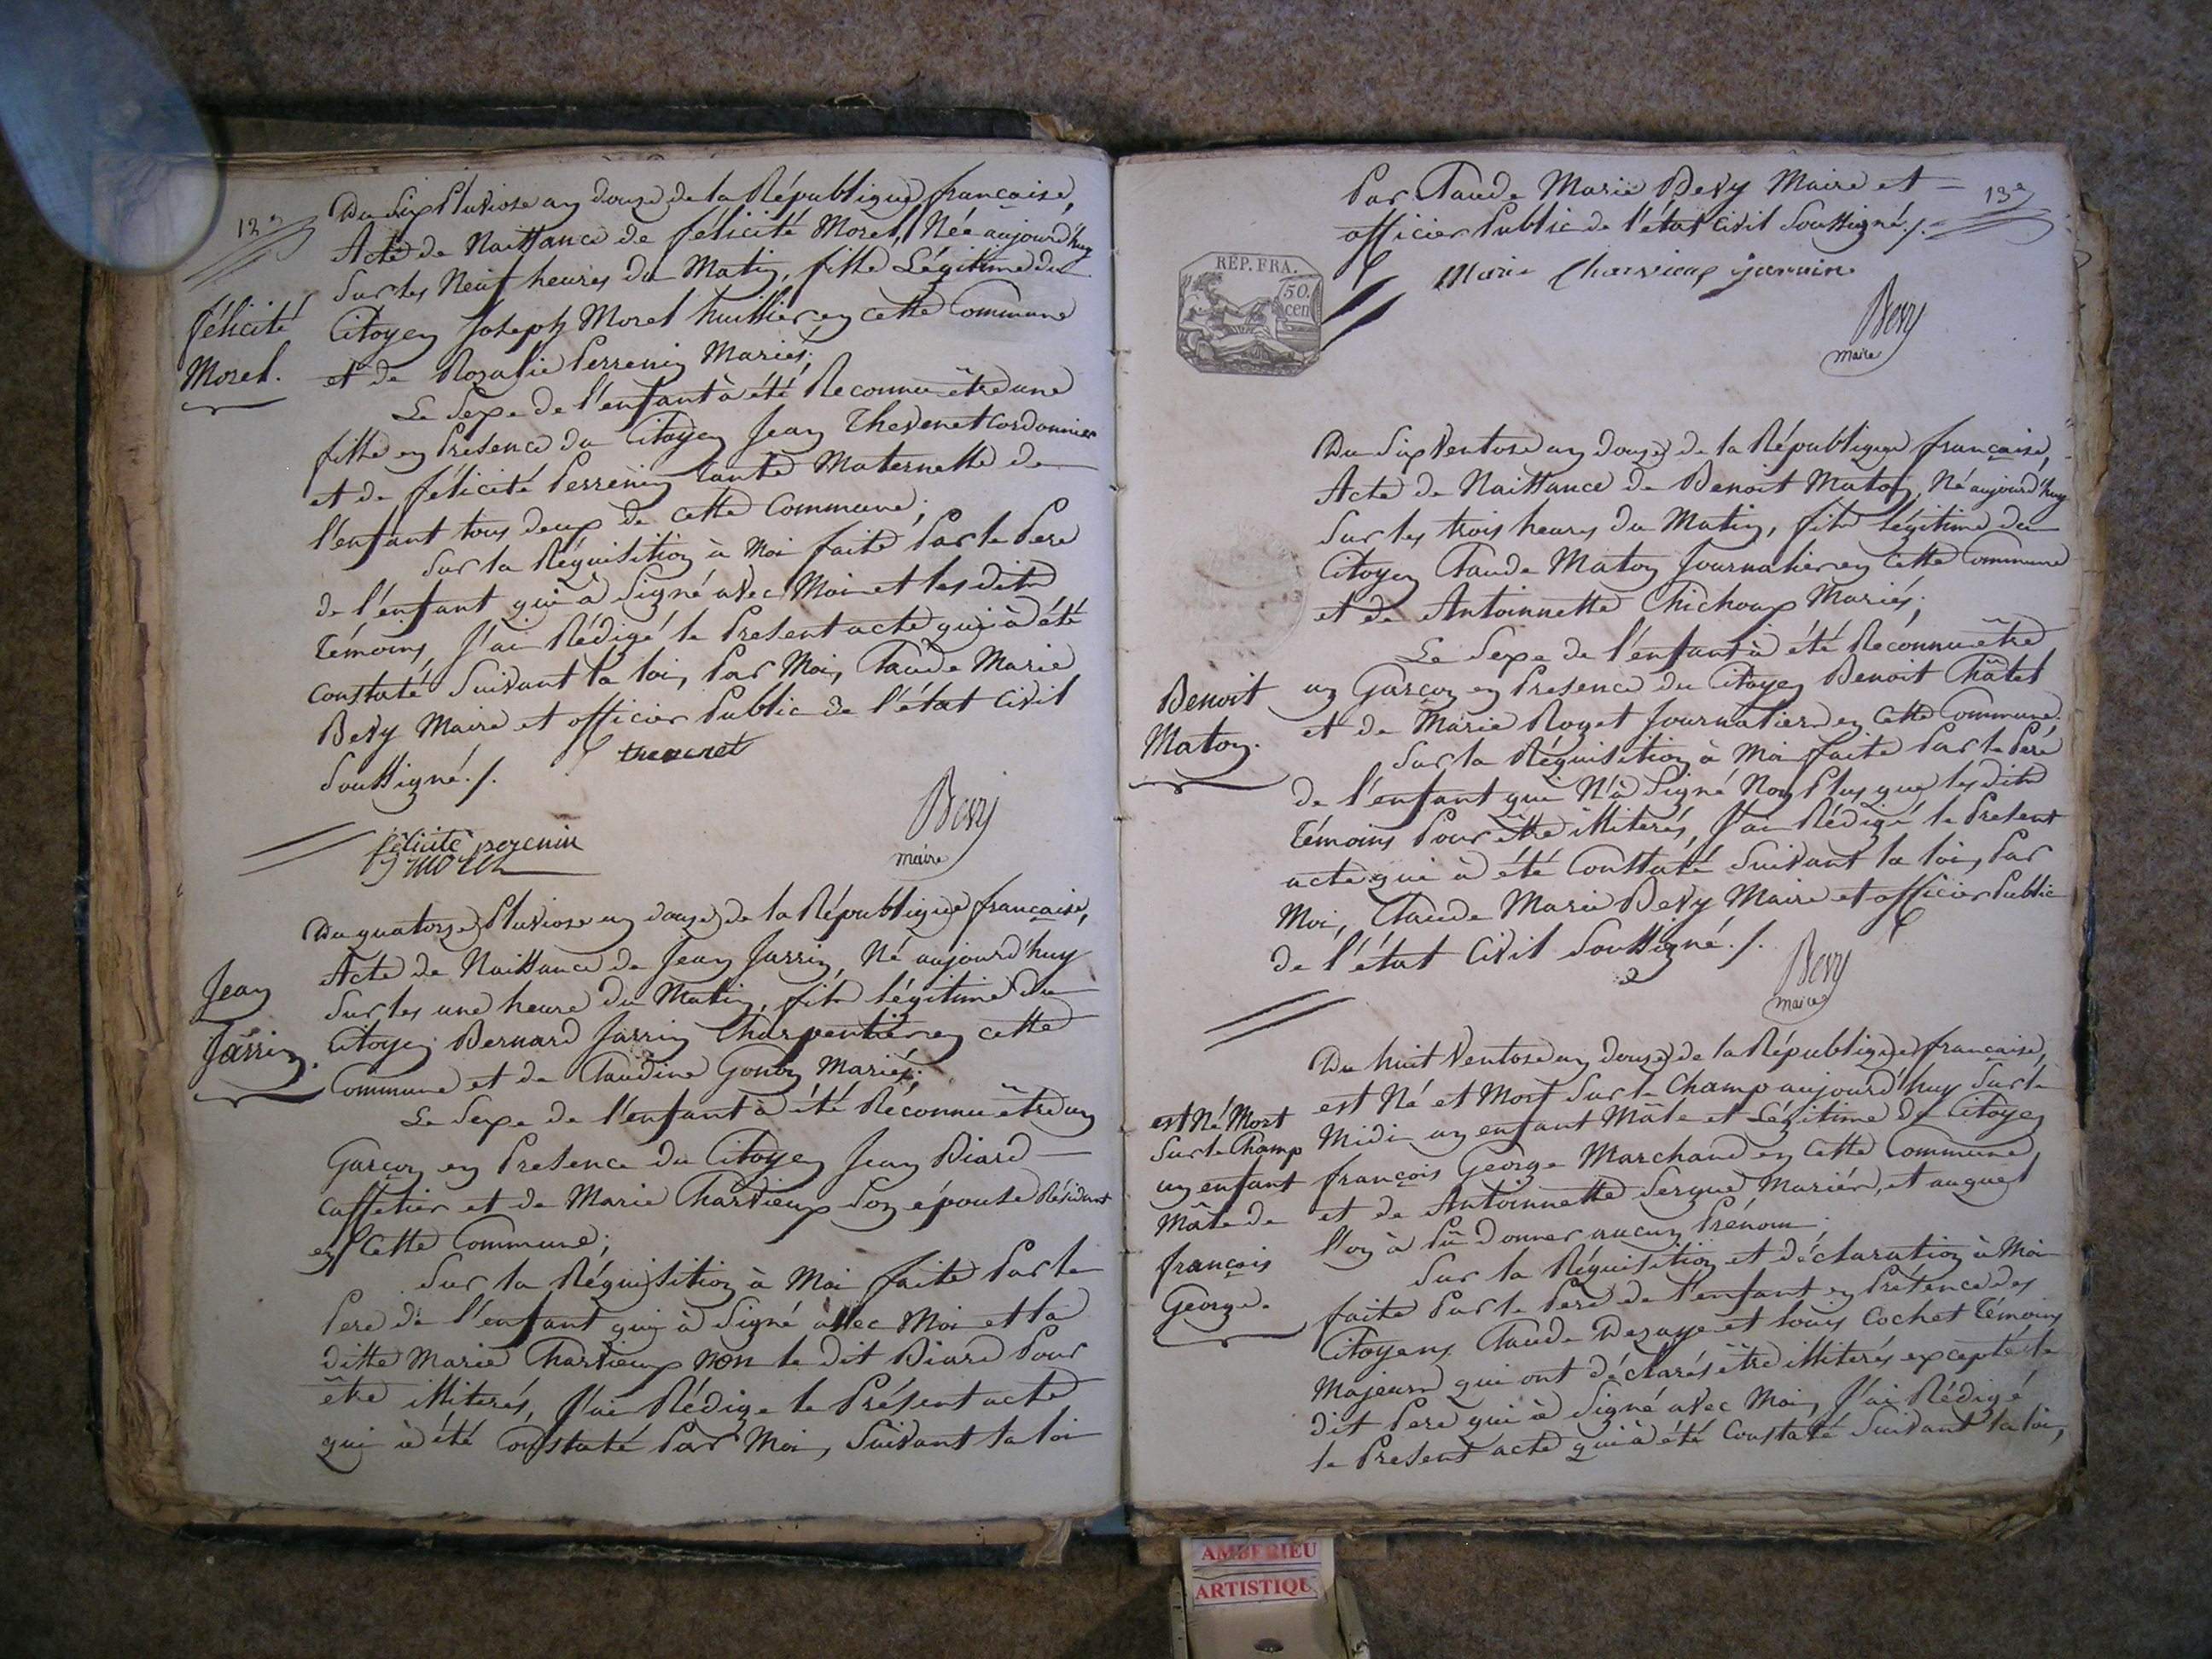 12e
Du Six Pluviose an douze de la République française,
Acte de Naissance de félicité Morel, Née aujourd'huy
Sur les Neuf heures du Matin, fille Légitime du
Citoyen Joseph Morel huissier en cette Commune
et de Rozalie Perrenin Mariés;
félicité
Morel.
Le Sexe de l'enfant à été Reconnu être une
fille en Presence du Citoyen Jean Thevenet Cordonnier
et de félicité Perrenin tante Maternelle de
l'enfant tous deux de cette Commune;
Sur la Réquisition à Moi faite Par le Pere
de l'enfant qui à Signé avec Moi et les dits
Témoins, J'ai Rédigé le Present acte qui à été
Constaté Suivant la loi, Par Moi, Claude Marie
Bevy Maire et officier Public de l'état Civil
Soussigné ./.
thevenet
félicité perenin
J morel
Bevy
maire
Du quatorze Pluviose an douze de la République française,
Acte de Naissance de Jean Jarrin, Né aujourd'huy
Sur les une heure du Matin, fils légitime du
Citoyen Bernard Jarrin Charpentier en cette
Commune et de Claudine Gonon Mariés;
Jean
Jarrin.
Le Sexe de l'enfant à été Réconnu être un
Garçon en Presence du Citoyen Jean Biard
Caffetier et de Marie Charvieux Son épouse Résidant
en Cette Commune;
Sur la Réquisition à Moi faite Par le
Pere de l'enfant qui à Signé avec Moi et la
ditte Marie Charvieux non le dit Biard Pour
être illiterés, J'ai Rédigé le Présent acte
qui à été Constaté Par Moi, Suivant la loi
13e
Par Claude Marie Bevy Maire et
officier Public de l'état Civil Soussigné ./.
RÉP. FRA.
50.
cen
Marie Charvieux jarrin
Bevy
maire
Du Six Ventose an douze de la République française,
Acte de Naissance de Benoit Maton, Né aujourd'huy
Sur les trois heures du Matin, fils légitime du
Citoyen Claude Maton Journalier en Cette Commune
et de Antoinnette Chichoux Mariés;
Le Sexe de l'enfant à été Reconnu être
un Garçon en Presence du Citoyen Benoit Châtel
et de Marie Royet Journaliers en Cette Commune.
Benoit
Maton.
Sur la Réquisition à Moi faite Par le Peré
de l'enfant qui N'à Signé Non Plus que les dits
Témoins Pour être illiterés, J'ai Rédigé le Present
acte qui à été Constaté Suivant la loi, Par
Moi, Claude Marie Bevy Maire et officier Public
de l'état Civil Soussigné ./.
Bevy
maire
Du huit Ventose an douze de la République française,
est Né et Mort Sur le Champ aujourd'huy Sur le
Midi un enfant Mâle et Légitime du Citoyen
françois George Marchand en Cette Commune
et de Antoinnette Sergue Mariés, et auquel
l'on à Pû donner aucun Prénom;
est Né Mort
Sur le Champ
un enfant
Mâle de
françois
George.
Sur la Réquisition et déclaration à Moi
faite Par le Pere de l'enfant en Présence des
Citoyens Claude Dezaye et Louis Cochet Témoins
Majeurs qui ont déclarés être illiterés excepté le
dit Pere qui à Signé avec Moi, J'ai Rédigé
le Present acte qui à été Constaté Suivant la loi,
AMBERIEU
ARTISTIQU